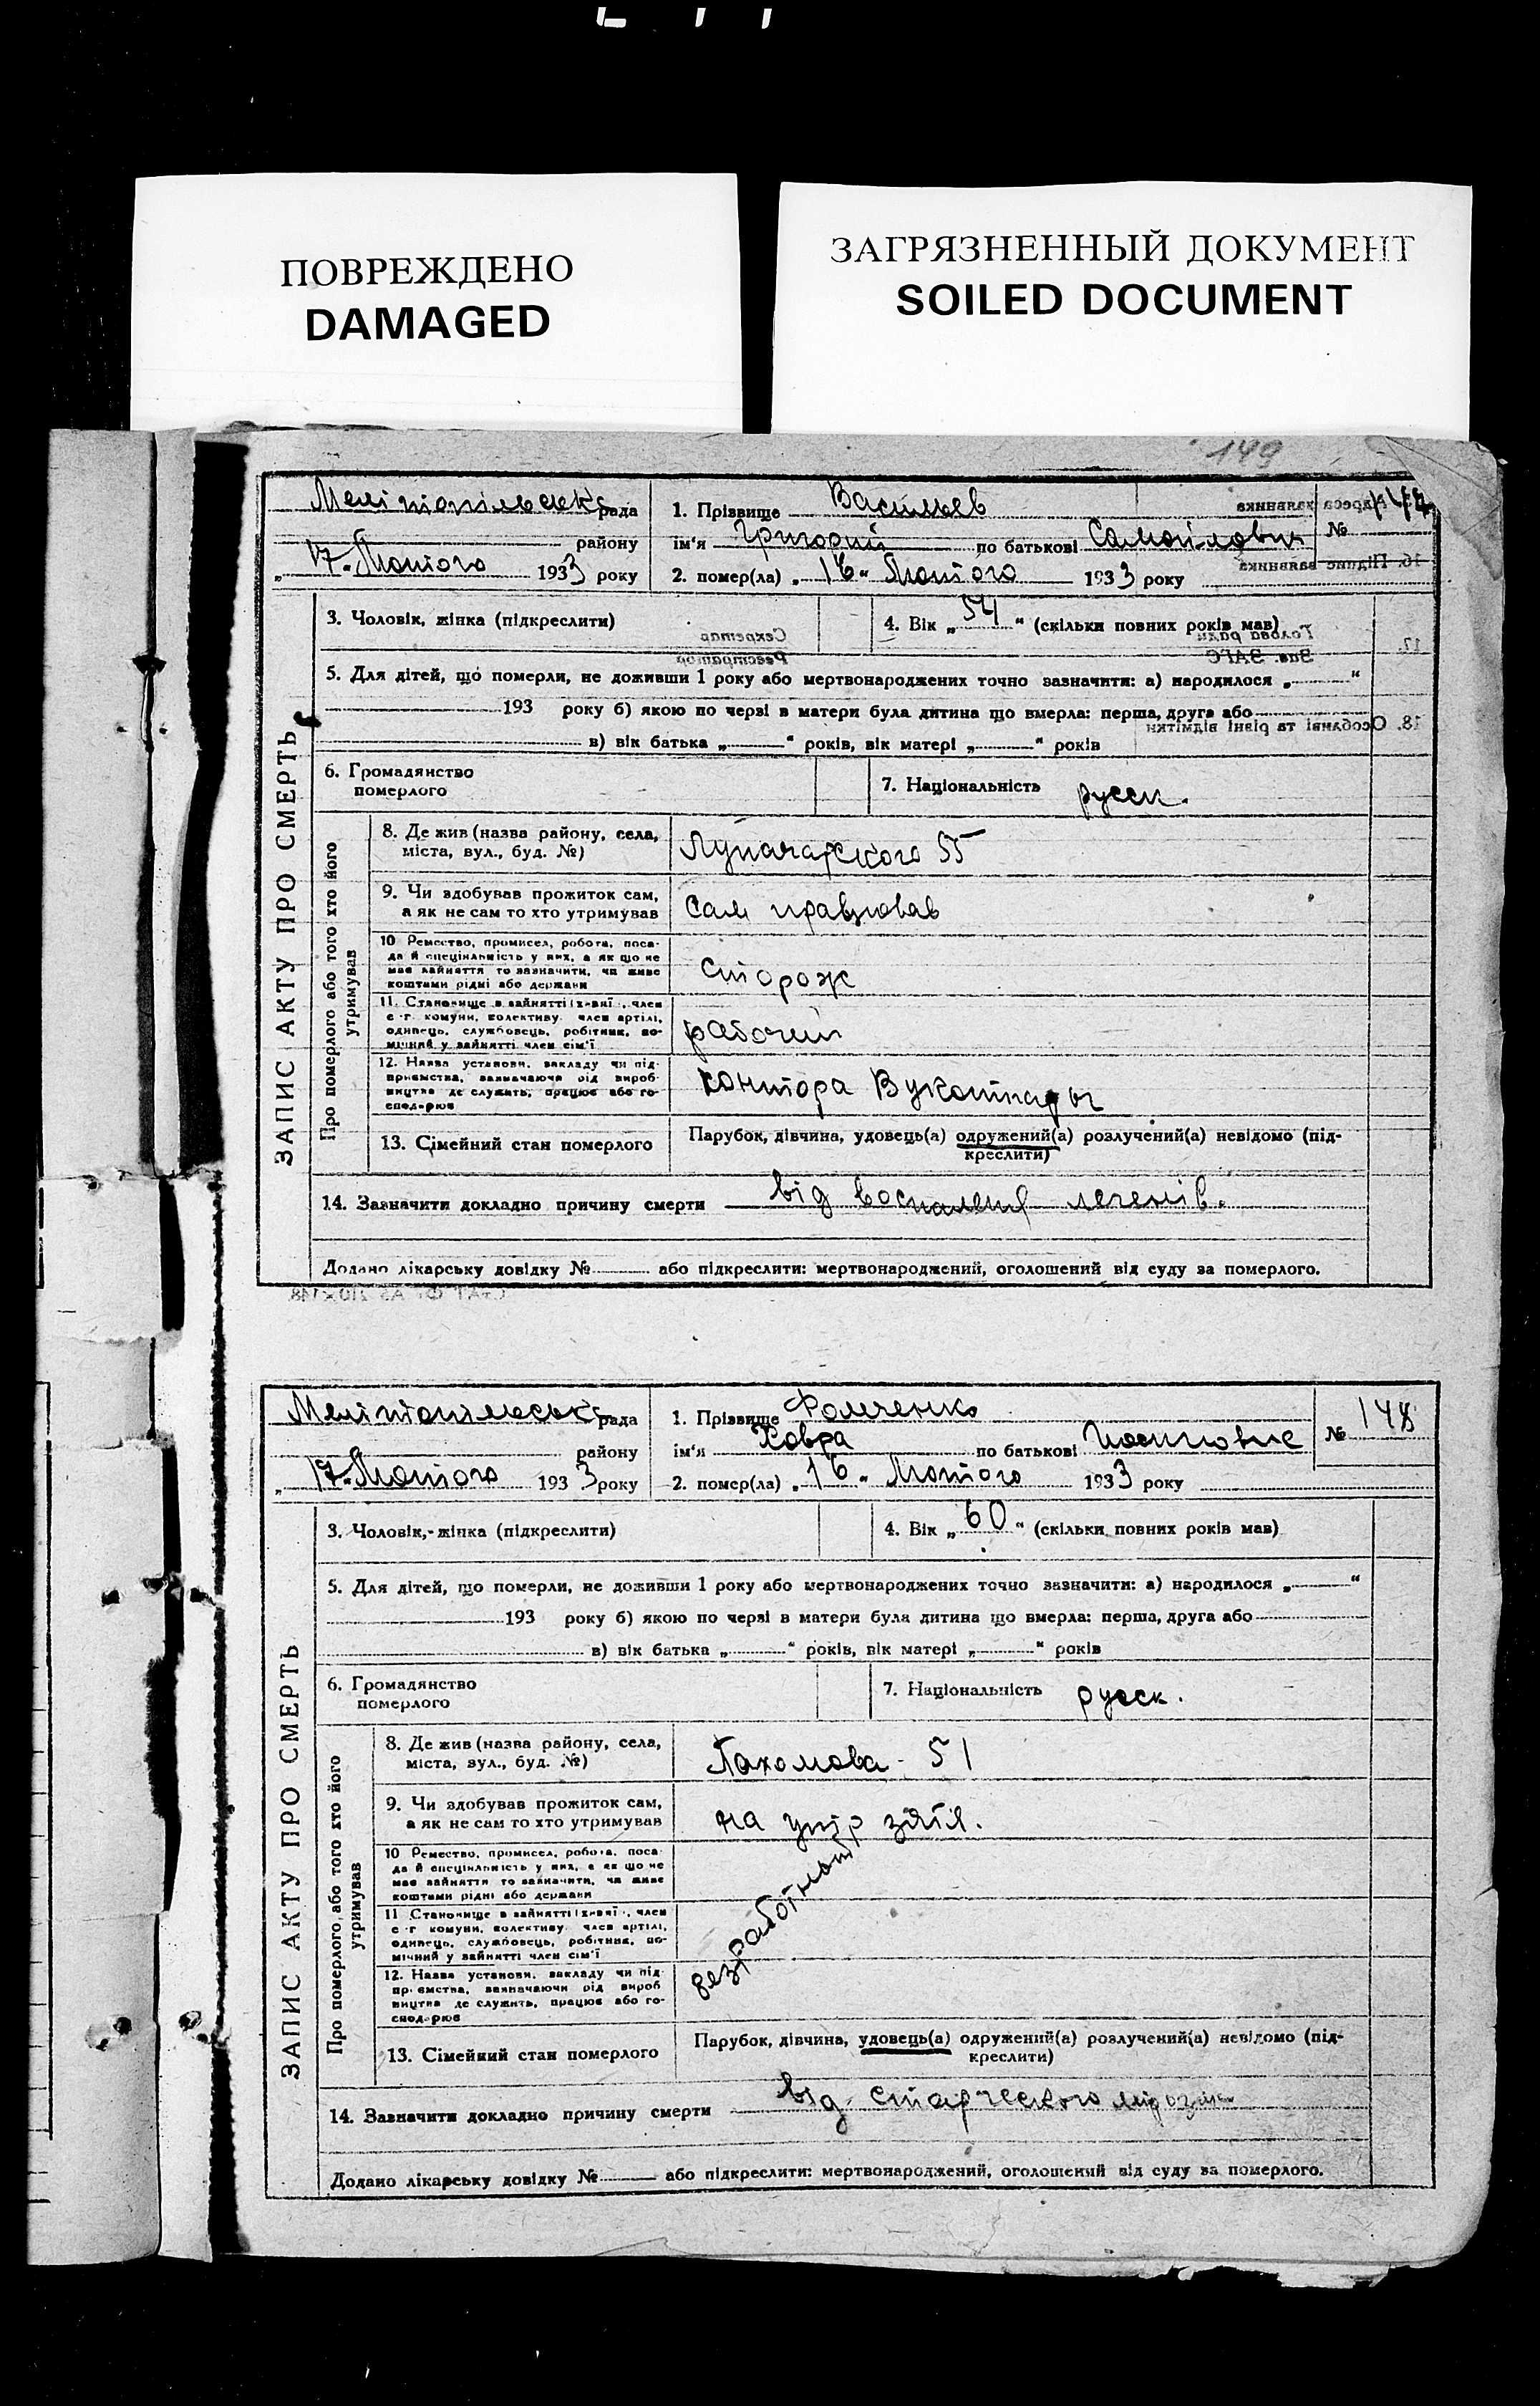 ПОВРЕЖДЕНО
DAMAGED
ЗАГРЯЗНЕННЫЙ ДОКУМЕНТ
SOILED DOCUMENT
149
ЗАПИС АКТУ ПРО СМЕРТЬ
Мелітопільськ рада
району
„17“ Лютого 1933 року
1. Прізвище Васильев
ім'я Григорий по батькові Самойлович
2. помер(ла) „16“ Лютого 1933 року
№ 147
3. Чоловік, жінка (підкреслити)
4. Вік „54“ (скільки повних років мав)
5. Для дітей, що померли, не доживши 1 року або мертвонароджених точно зазначити: а) народилося „ “
193 року б) якою по черзі в матери була дитина що вмерла: перша, друга або
в) вік батька „ “ років, вік матері „ “ років
6. Громадянство
померлого
7. Національність русск.
Про померлого або того хто його
утримував
8. Де жив (назва району, села,
міста, вул., буд. №)
Луначарского 55
9. Чи здобував прожиток сам,
а як не сам то хто утримував
Сам працював
10 Ремество, промисел, робота, поса-
да й спеціяльність у них, а як що не
має зайняття то зазначити, чи живе
коштами рідні або держави
Сторож
11. Становище в зайнятті (хазяї, член
с-г комуни, колективу, член артілі,
одинець, службовець, робітник, по-
мічний у зайнятті член сім'ї
рабочий
12. Назва установи, закладу чи під-
приємства, зазначаючи рід вироб-
ництва де служить, працює або го-
сподарює
контора
13. Сімейний стан померлого
Парубок, дівчина, удовець(а) одружений(а) розлучений(а) невідомо (під-
креслити)
14. Зазначити докладно причину смерти від воспаления легенів.
Додано лікарську довідку № або підкреслити: мертвонароджений, оголошений від суду за померлого.
16. Підпис заявника
Адреса заявника
17.
Голова ради
Зав. ЗАГС
Секретар
Реєстратор
18. Особливі та різні відмітки
ЗАПИС АКТУ ПРО СМЕРТЬ
Мелітопільськ рада
району
„17“ Лютого 1933 року
1. Прізвище Фомченко
ім'я Ховра по батькові
2. помер(ла) „16“ Лютого 1933 року
№ 148
3. Чоловік, жінка (підкреслити)
4. Вік „60“ (скільки повних років мав)
5. Для дітей, що померли, не доживши 1 року або мертвонароджених точно зазначити: а) народилося „ “
193 року б) якою по черзі в матери була дитина що вмерла: перша, друга або
в) вік батька „ “ років, вік матері „ “ років
6. Громадянство
померлого
7. Національність русск.
Про померлого або того хто його
утримував
8. Де жив (назва району, села,
міста, вул., буд. №)
Пахомова - 51
9. Чи здобував прожиток сам,
а як не сам то хто утримував
на утр зятя.
10 Ремество, промисел, робота, поса-
да й спеціяльність у них, а як що не
має зайняття то зазначити, чи живе
коштами рідні або держави
11 Становище в зайнятті (хазяї, член
с-г комуни, колективу, член артілі,
одинець, службовець, робітник, по-
мічний у зайнятті член сім'ї
12. Назва установи, закладу чи під-
приємства, зазначаючи рід вироб-
ництва де служить, працює або го-
сподарює
безработный
13. Сімейний стан померлого
Парубок, дівчина, удовець(а) одружений(а) розлучений(а) невідомо (під-
креслити)
14. Зазначити докладно причину смерти від старческого
Додано лікарську довідку № або підкреслити: мертвонароджений, оголошений від суду за померлого.